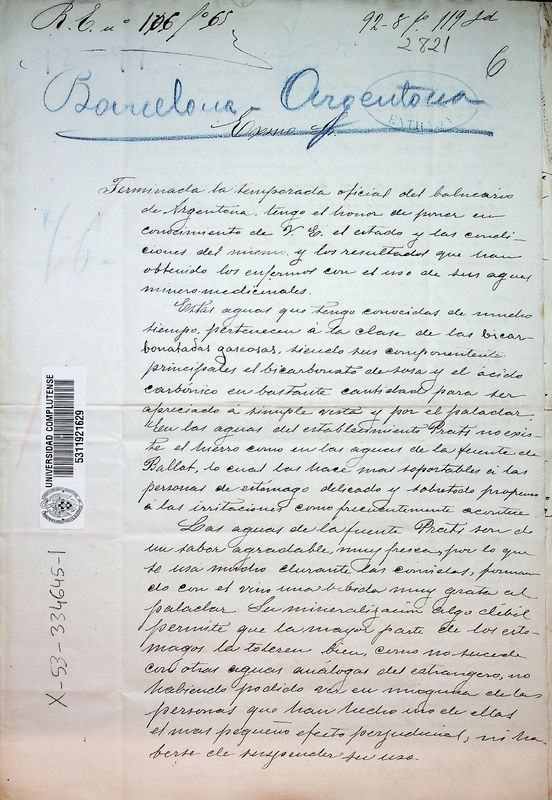 R. E. nº 106 fº 65
92-8 fº 119 
2821
6
Barcelona - Argentona
Exmo Sr.
Terminada la temporada oficial del balneario
de Argentona, tengo el honor de poner en
conocimiento de V. E. el estado y las condi-
ciones del mismo, y los resultados que han
obtenido los enfermos con el uso de sus aguas
minero-medicinales.
Estas aguas que tengo conocidas de mucho
tiempo, pertenecen á la clase de las bicar-
bonatadas gaseosas, siendo sus componentes
principales el bicarbonato de sosa y el ácido
carbónico en bastante cantidad para ser
apreciado a simple vista y por el paladar.
En las aguas del establecimiento Prats no exis-
te el hierro como en las aguas de la fuente de
Ballot, lo cual las hace mas soportables á las
personas de estómago delicado y sobretodo propenso
á las irritaciones como frecuentemente acontece.
Las aguas de la fuente Prats son de
un sabor agradable, muy fresca, por lo que
se usa mucho durante las comidas, forman-
do con el vino una bebida muy grata al
paladar. Su mineralización algo débil
permite que la mayor parte de los estó-
magos la toleren bien, como no sucede
con otras aguas análogas del estrangero, no
habiendo podido ver en ninguna de las
personas que han hecho uso de ellas
el mas pequeño efecto perjudicial, ni ha-
berse de suspender su uso.
UNIVERSIDAD COMPLUTENSE
5311921629
X-53-334645-1